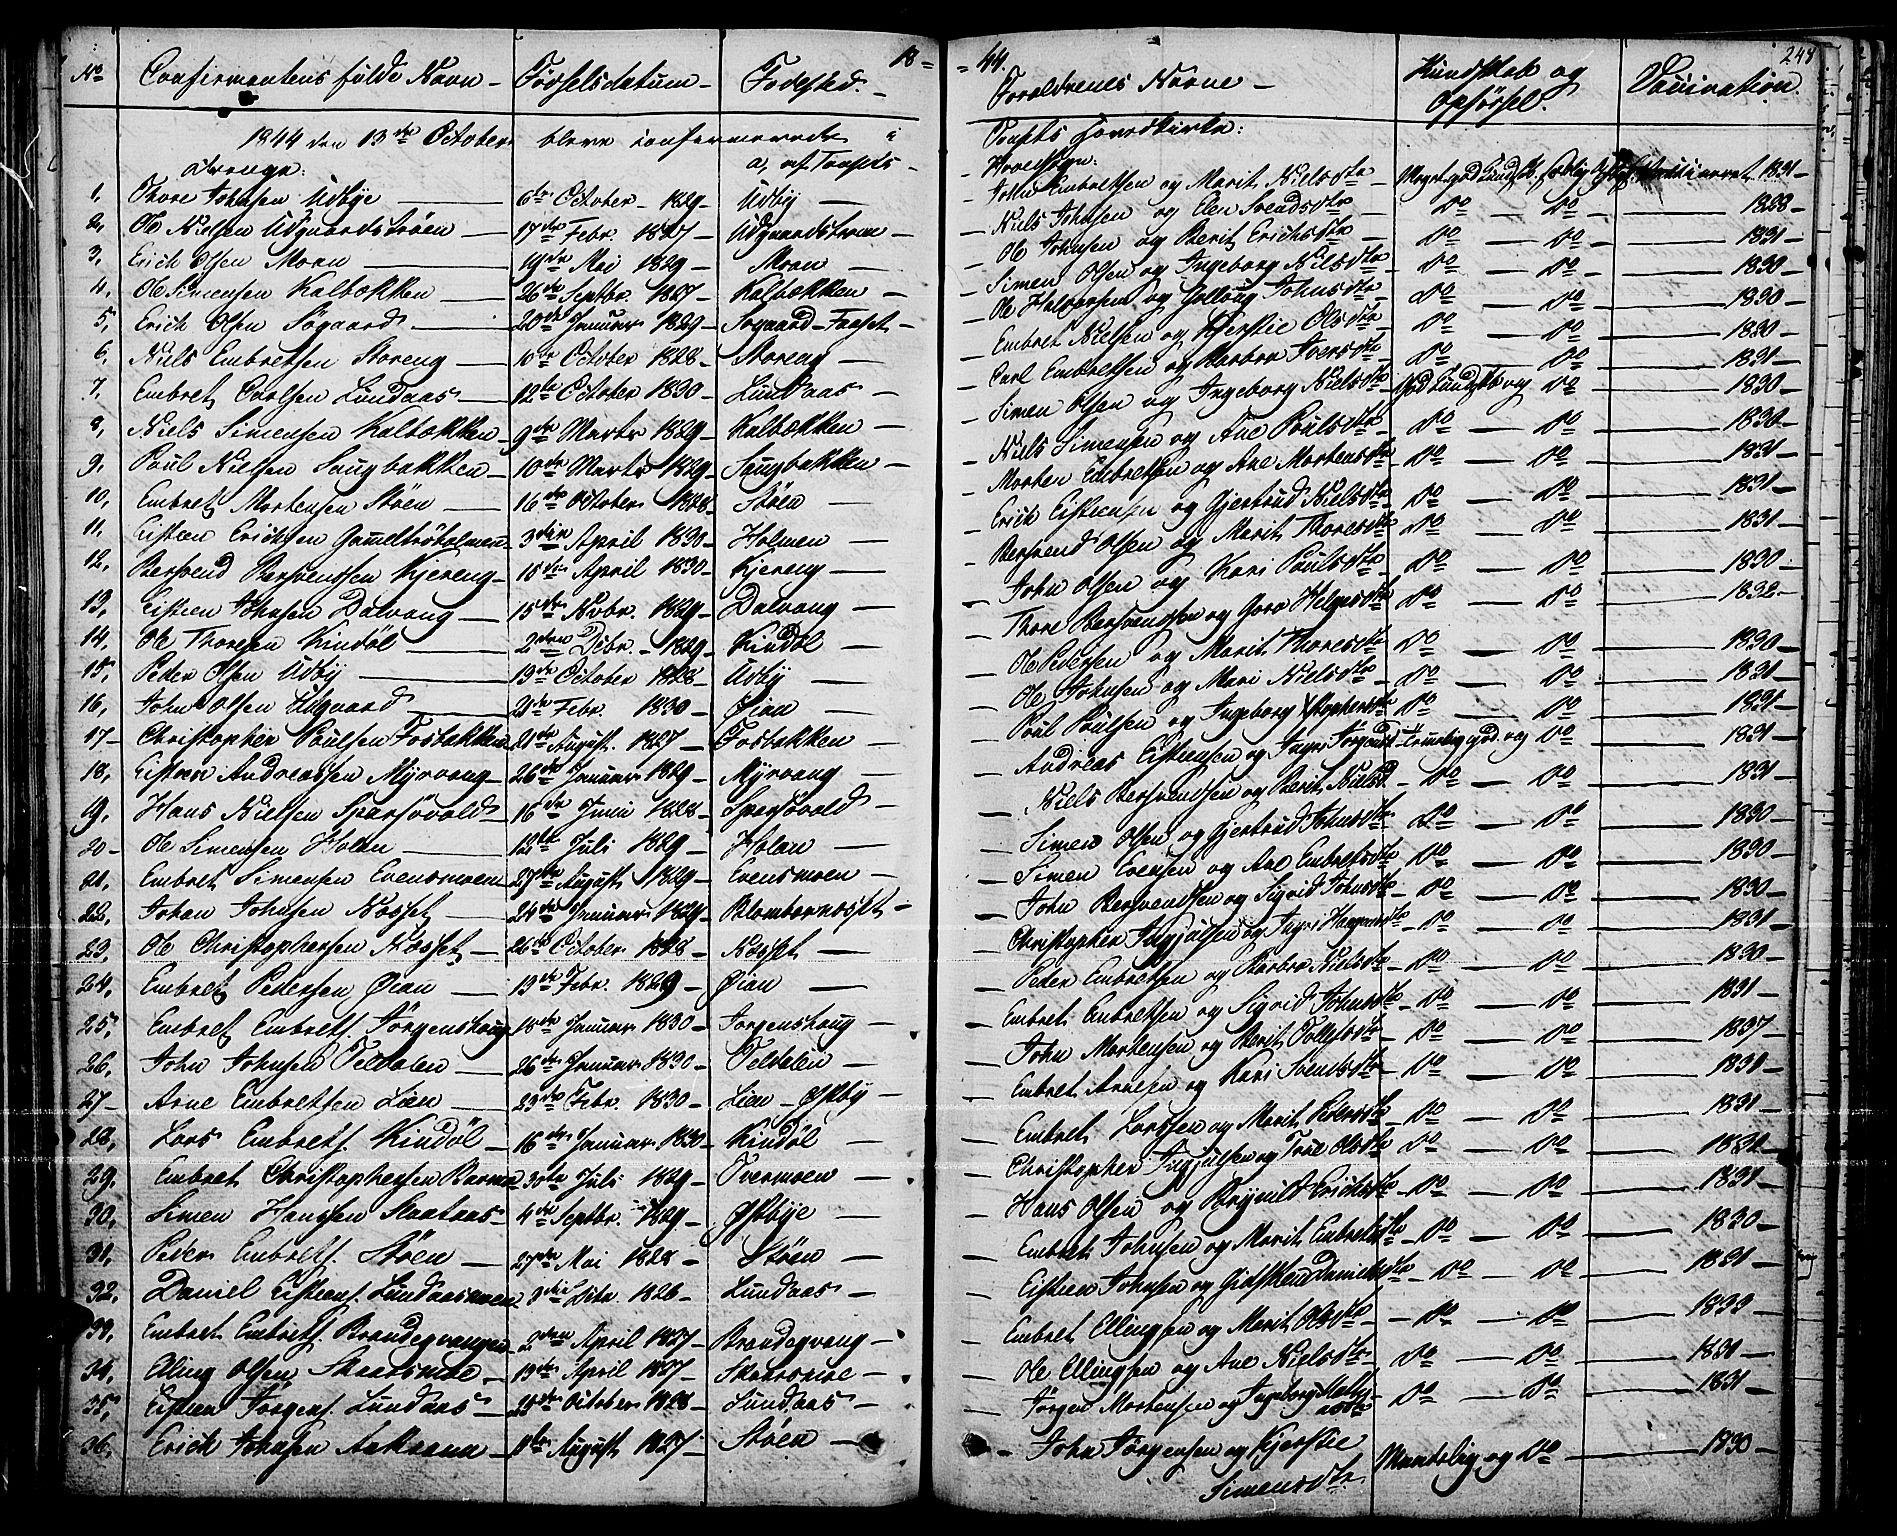 18 = = 44. 248
No Confirmantens fulde Navn - Fødselsdatum - Fødested. - Forældrenes Navne - Kundskab og Opførsel. Vaccination.
1844 den 13de October bleve confirmerede i Tønsets Hovedkirke:
Drenge: a, af Tønsets - Hovedsogn:
1, Thore Johnsen Udbye — 6te October - 1829 - Udby — John Embretsen og Marit Nielsdtr 1831 -
2, Ole Nielsen Udgaardstrøen — 17de Febr. 1827 - Udgaardstrøen — Niels Johnsen og Elen Svendsdtr - Do — Do — 1828 -
3, Erich Olsen Moan — 19de Mai 1829 - Moan — Ole Johnsen og Berit Erichsdtr - Do — Do — 1831 -
4, Ole Simensen Kalbækken — 26de Septbr. 1827 - Kalbækken — Simen Olsen og Ingeborg Nielsdtr Do — Do — 1830 -
5, Erich Olsen Søgaard — 20de Januar 1829 - Søgaard - Faaset - Ole Halvorsen og Gollaug Johnsdtr Do — Do — 1830 -
6, Niels Embretsen Storeng — 10de October 1828 - Storeng — Embret Nielsen og Kierstie Olsdtr Do — Do — 1830 -
7, Embret Carlsen Lundaas — 12te October 1830 - Lundaas — Carl Embretsen og Barbra Iversdtr Do — Do — 1831 -
8, Niels Simensen Kalbækken - 9de Marts 1829 - Kalbækken — Simen Olsen og Ingeborg Nielsdtr God Kundskb og Do — 1830 -
9, Poul Nielsen Saugbakken - 10de Marts 1829 - Saugbakken — Niels Simensen og Ane Poulsdtr Do — Do — 1830 -
10, Embret Mortensen Støen — 16de October 1828 - Støen — Morten Embretsen og Ane Mortensdtr Do — Do — 1831 -
11, Eistein Erichsen Gammeltrøholmen - 3die April 1830 - Holmen — Erich Eistensen og Gjertrud Nielsdtr Do — Do — 1831 -
12, Bersvend Bersvendsen Kjereng - 15de April 1830 - Kjereng — Bersvend Olsen og Marit Thoresdtr Do — Do — 1831 -
13, Eistein Johnsen Dalvang — 15de Novbr. 1829 - Dalvang — John Olsen og Kari Poulsdtr Do — Do — 1830 -
14, Ole Thoresen Kindøl — 2den Debr. - 1829 - Kindøl — Thore Bersvendsen og Goro Helgesdtr Do — Do — 1832 -
15, Peder Olsen Udby — 19de October 1828 - Udby — Ole Pedersen og Marit Thoresdtr Do — Do — 1830 -
16, John Olsen Udgaard — 21de Febr. 1830 - Øian — Ole Johnsen og Mari Nielsdtr Do — Do — 1831 -
17 - Christopher Poulsen Fosbakken 21de August. 1827 - Fosbakken — Poul Poulsen og Ingeborg Do — Do — 1831 -
18, Eistein Andreassen Myrvang - 26de Januar 1829 - Myrvang — Andreas Eistensen og Inger Jørgensd Temmelig god og Do — 1831 -
19, Hans Nielsen Sparsøvold - 16de Juni 1828 - Sparsøvold — Niels Bersvendsen og Berit Nielsd. - Do — Do — 1831 -
20 - Ole Simensen Holen — 12te Juli 1829 - Holen — Simen Olsen og Gjertrud Johnsdtr Do — Do — 1830 -
21, Embret Simensen Evensmoen 27de August 1829 - Evensmoen — Simen Evensen og Ane Embretsdtr Do — Do — 1830 -
22, Johan Johnsen Næsset — 24de Januar 1829 - Blombernæsset - John Bersvendsen og Sigrid Johnsdtr Do — Do — 1830 -
23, Ole Christophersen Næsset — 26de October 1828 - Næsset — Christopher Ingjulsen og Inger Do — Do — 1831 -
24, Embret Pedersen Øian — 19de Febr. 1829 - Øian — Peder Embretsen og Barbra Nielsdtr Do — Do — 1830 -
25, Embret Embrets. Jørgenshaug 18de Januar 1830 - Jørgenshaug — Embret Embretsen og Sigrid Johnsdtr Do — Do — 1831 -
26, John Johnsen Teldalen — 26de Januar 1830 - Teldalen — John Mortensen og Berit Tollefsdtr Do — Do — 1837 -
27 - Arne Embretsen Lien — 23de Febr. 1830 - Lien - Østby — Embret Arnesen og Kari Svendsdtr Do — Do — 1831 -
28, Lars Embrets. Kindøl — 16de Januar 1830 - Kindøl — Embret Larssen og Marit Pedersdtr Do — Do — 1831 -
29, Embret Christophersen 30te Juli 1829 - Tvermoen — Christopher Ingjulsen og Olsdtr Do — Do — 1831 -
30, Simen Hanssen 4de Septbr. 1829 - Østbye — Hans Olsen og Brynild Erichsdtr Do — Do — 1831 -
31, Peder Embrets. Støen — 27de Mai 1828 - Støen — Embret Johnsen og Marit Embretsdtr Do — Do — 1830 -
32, Daniel Eistens. Lundaasmoen 3die Debr. 1826 - Lundaas — Eisten Johnsen og Danielsdtr - Do — Do — 1831 -
33, Embret Embrets. Brandegvangen 2den April 1827 - Brandegvang — Embret Ellingsen og Marit Olsdtr - Do — Do — 1833 -
34, Elling Olsen 19de April 1827 - Ole Ellingsen og Ane Nielsdtr - Do — Do — 1831 -
35, Eisten Jørgens. Lundaas — 25de October 1828 - Lundaas — Jørgen Mortensen og Ingeborg Do — Do — 1831 -
36, Erich Johnsen 11te August 1827 - Støen — John Jørgensen og Kjerstie Simensdtr. Maadelig og Do — 1830 -